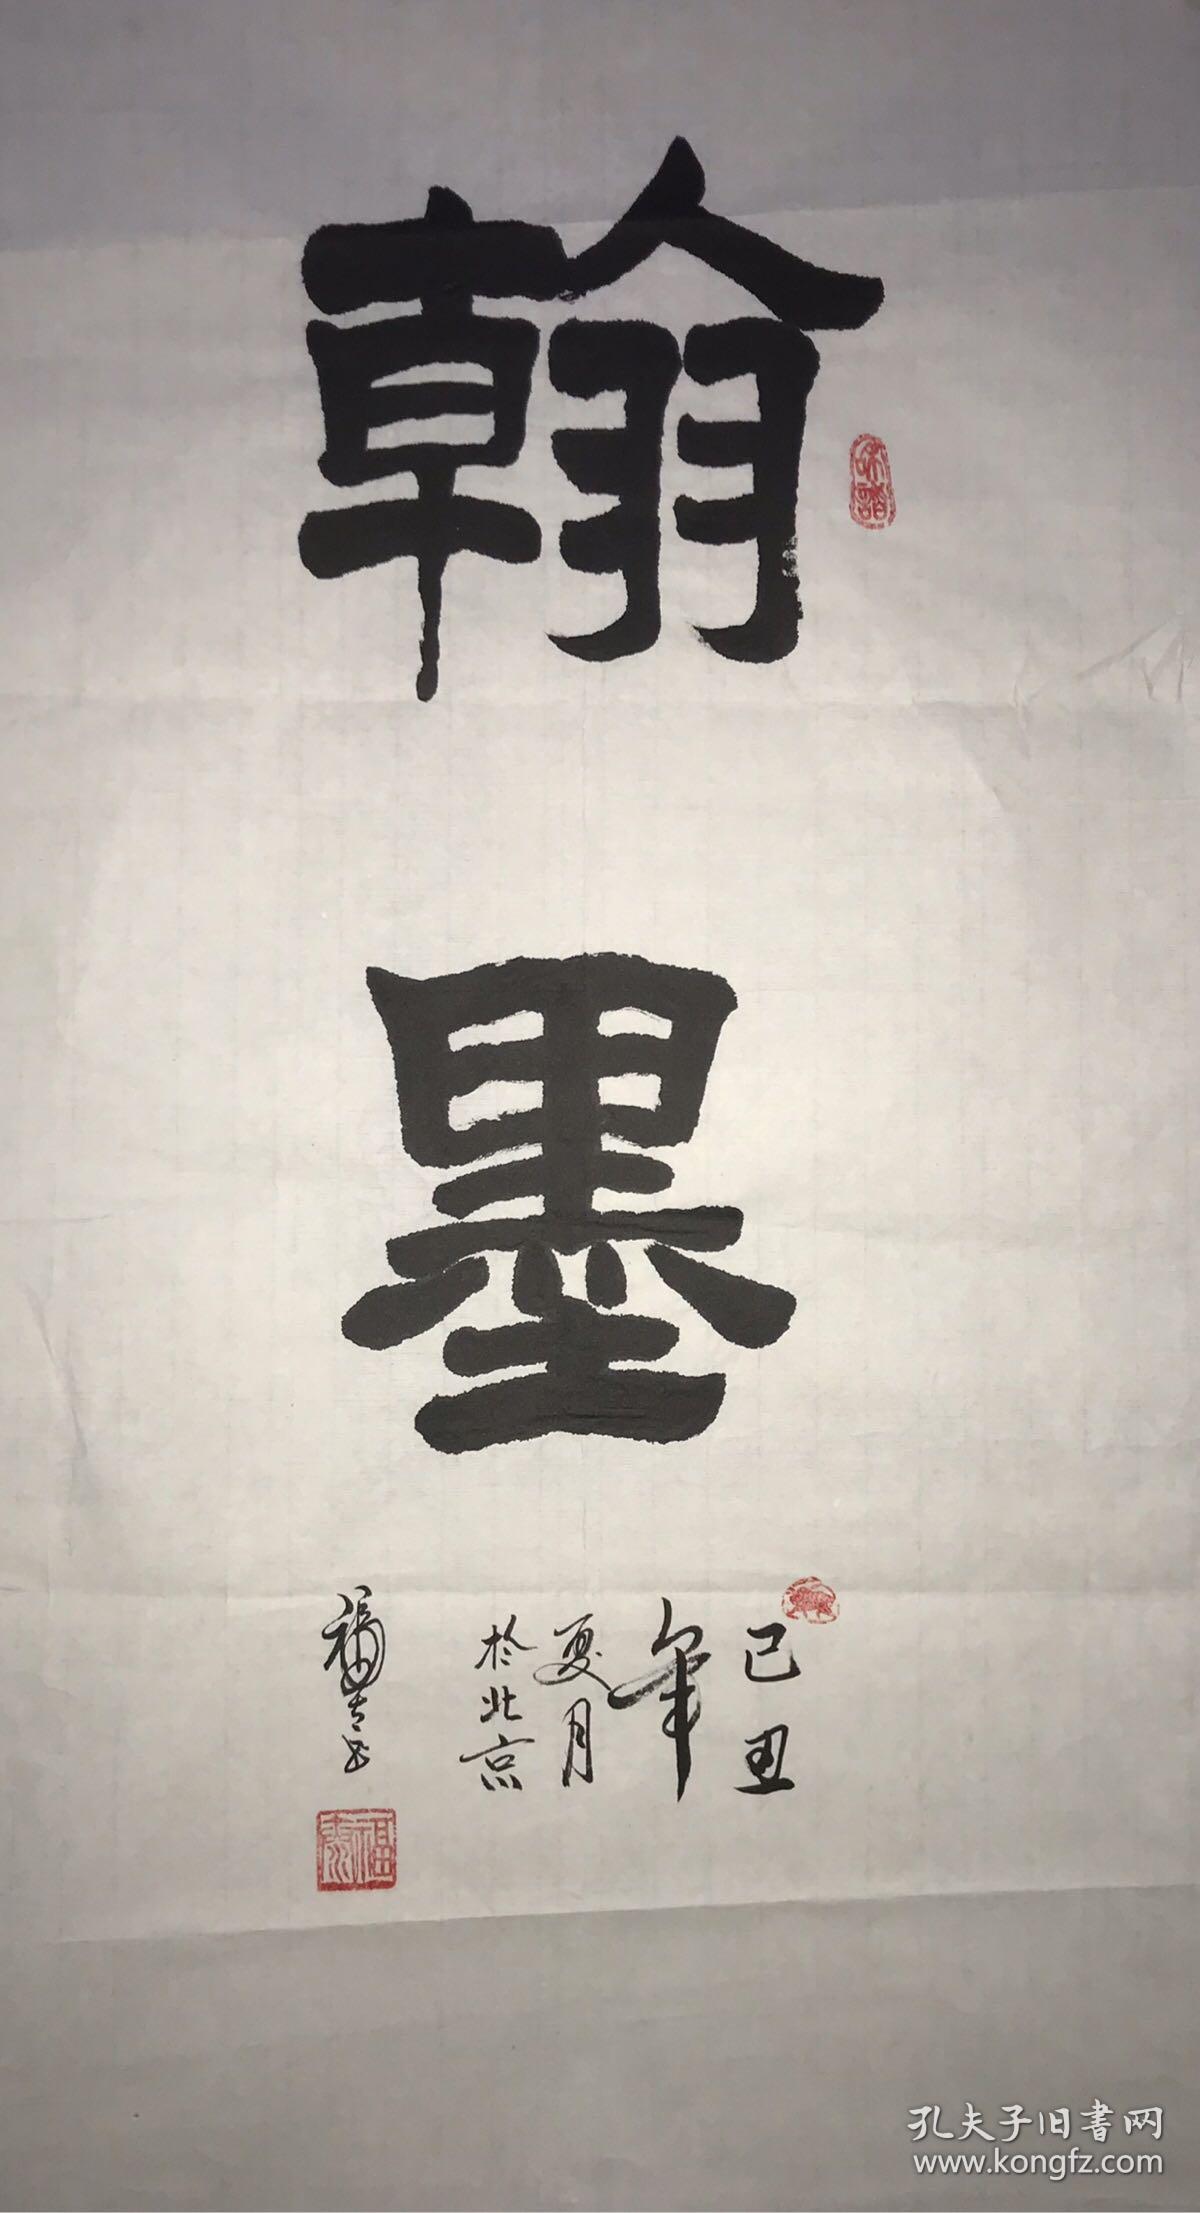 翰
墨
和諧
己丑
年
夏月
於北京
福
孔夫子旧书网
www.kongfz.com